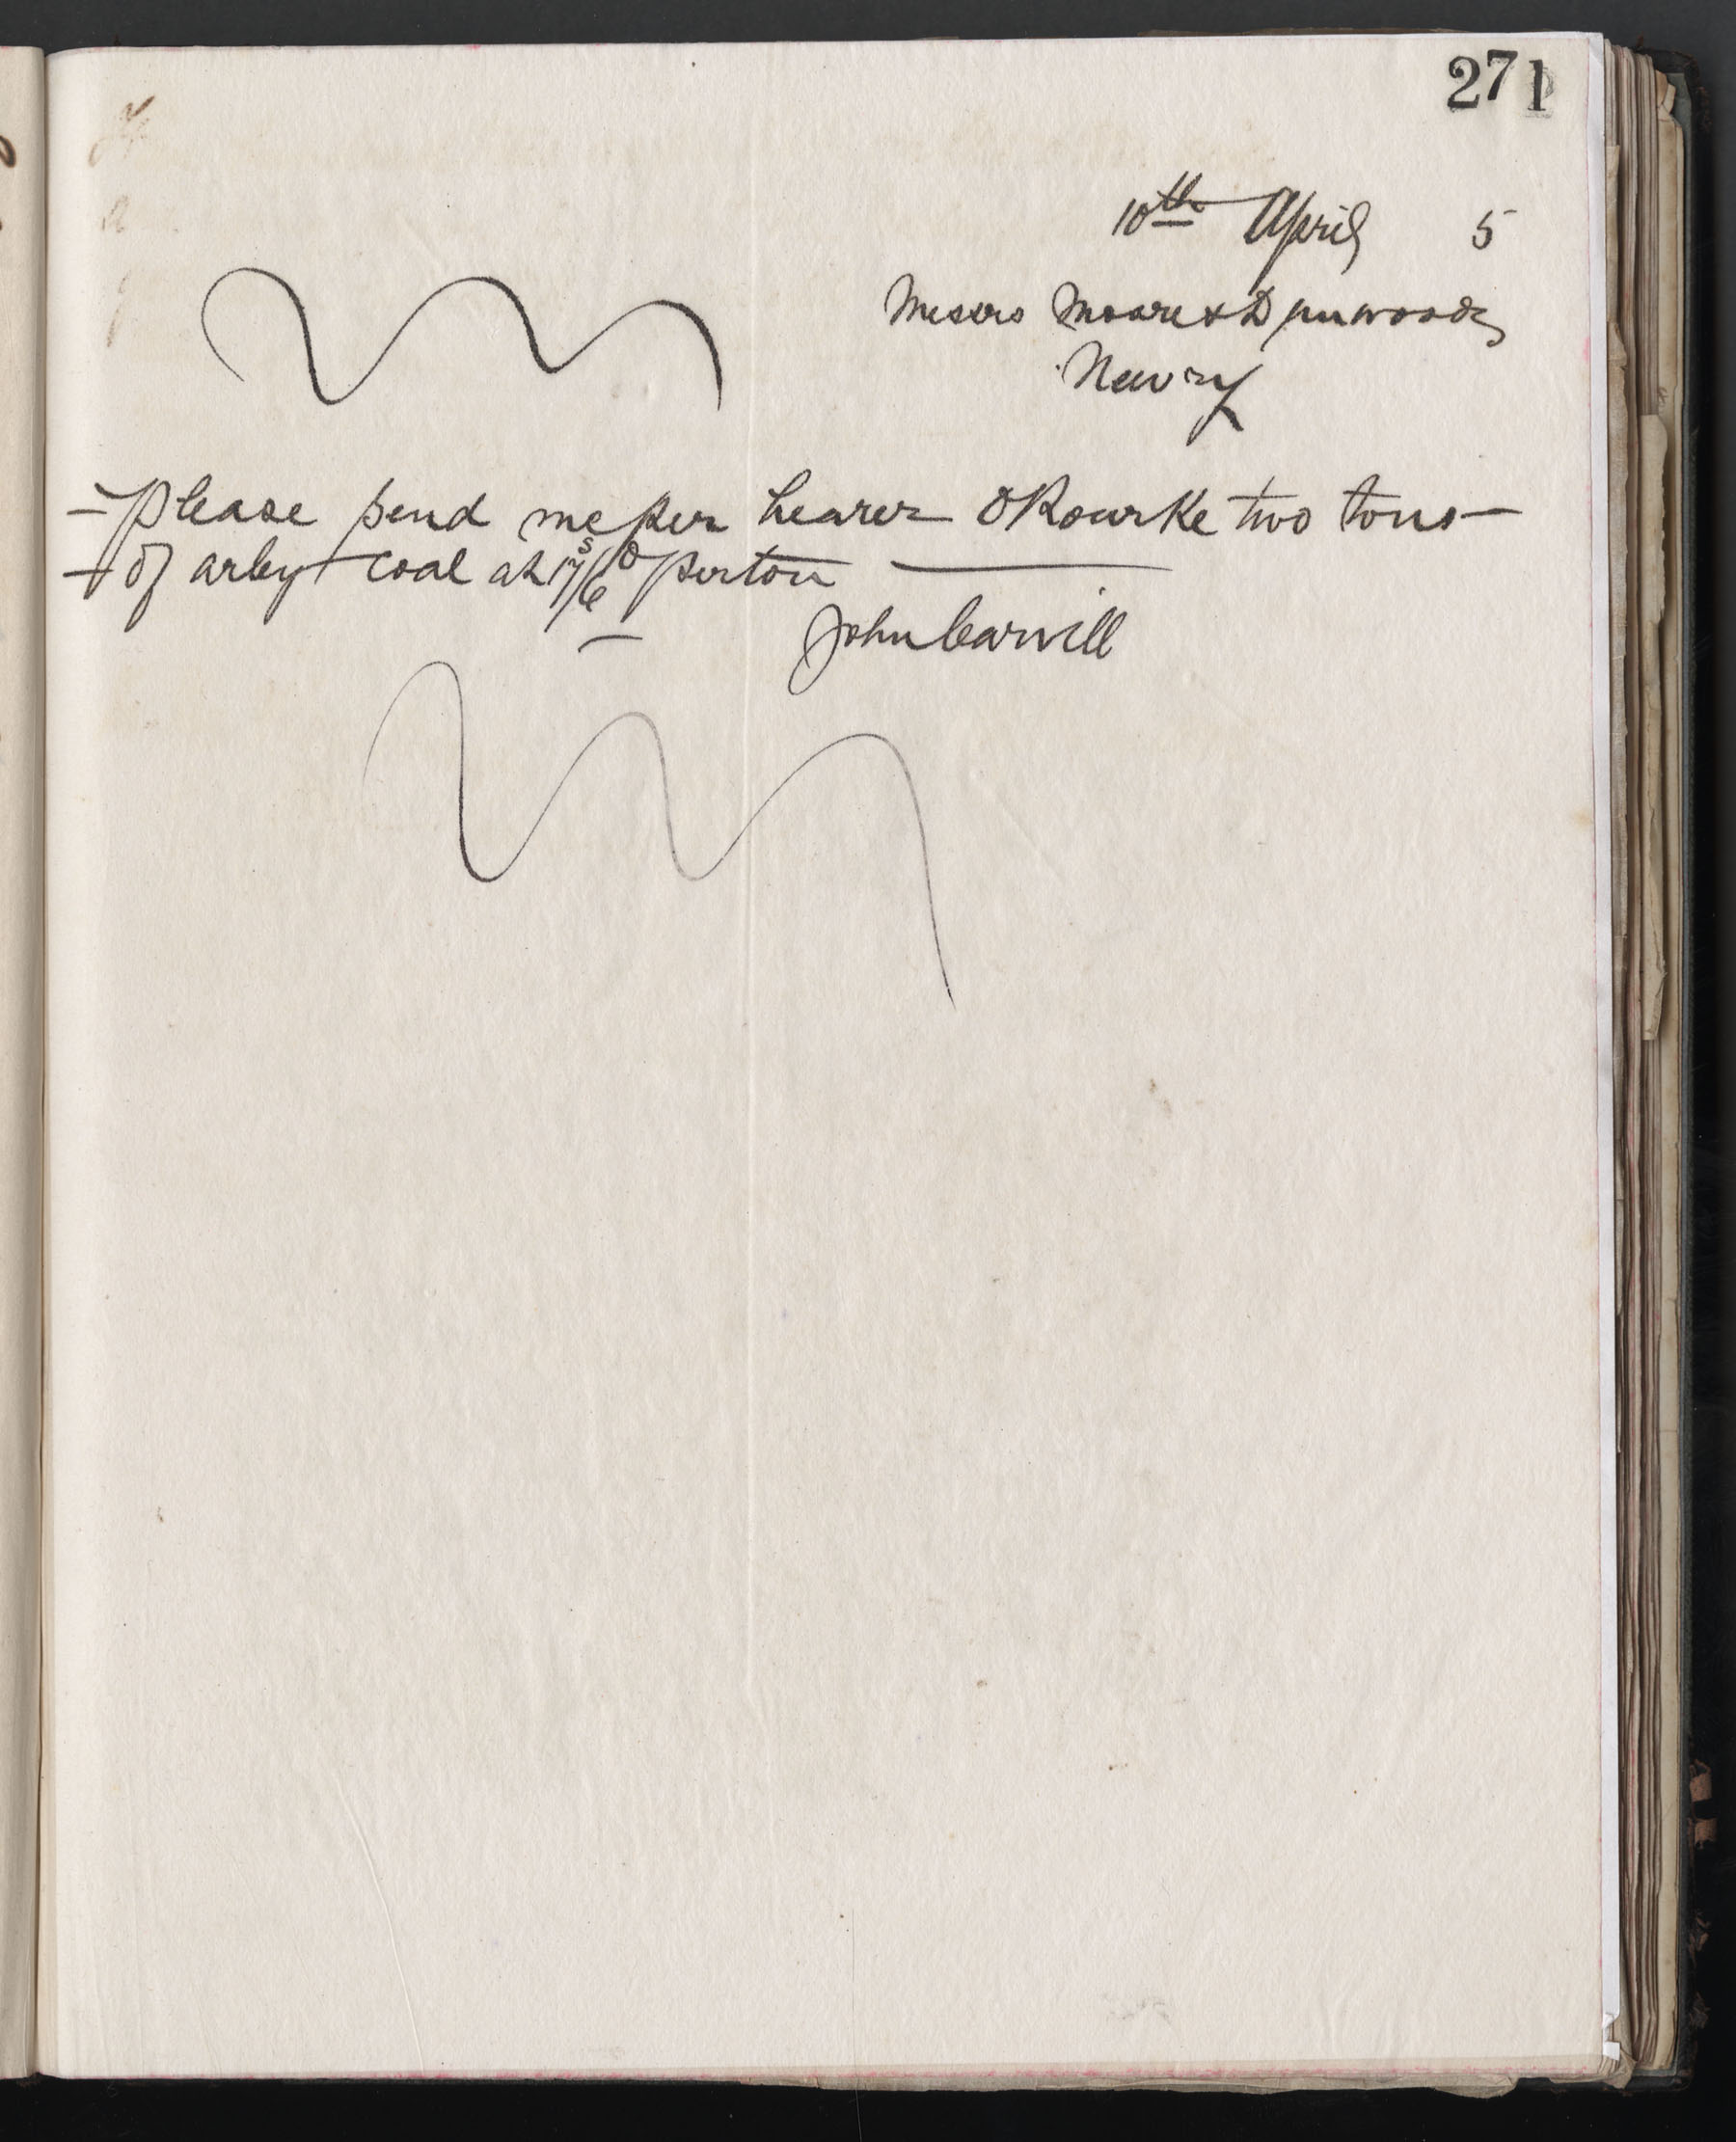 271
10th April 5
Messrs Moore & Dunwoody
Newry
Please send me per bearer O Rourke two tons
of arley coal at 17s/6d per ton
John Carvill